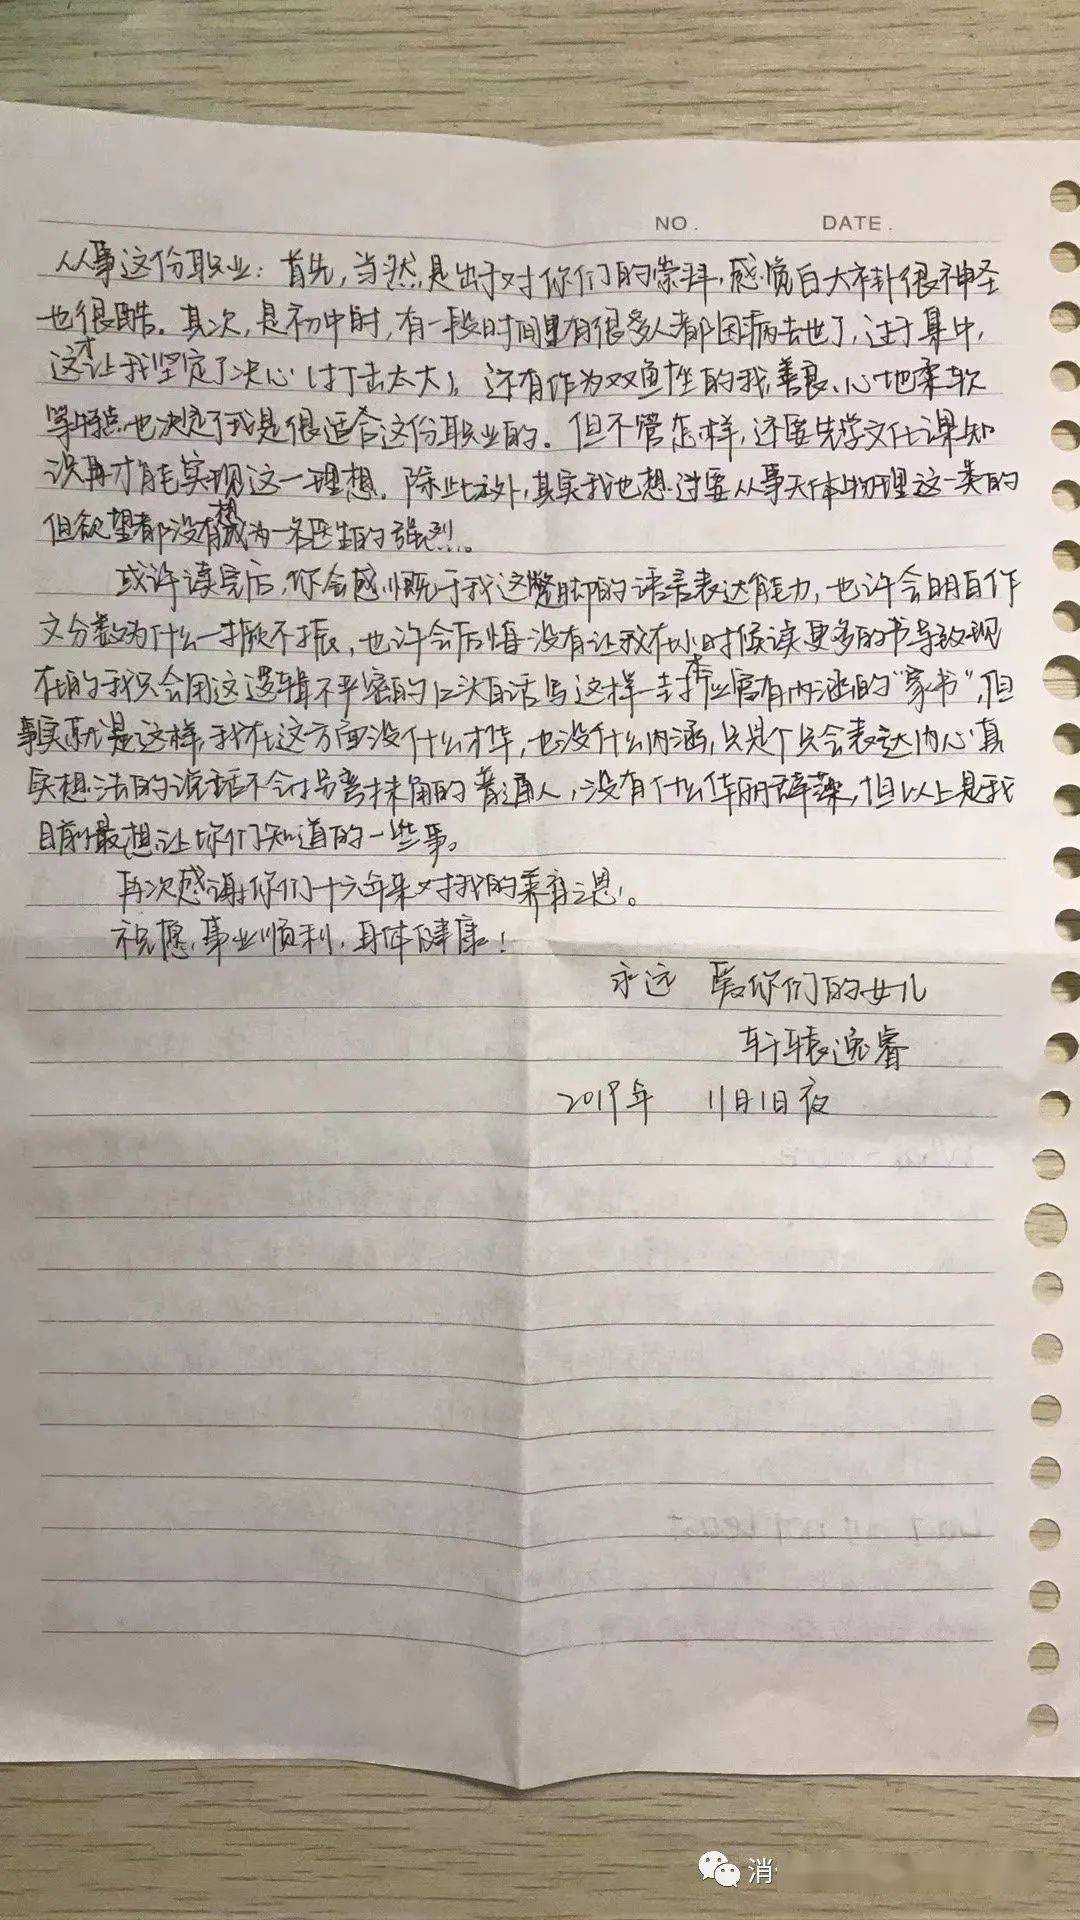 NO. DATE.
从事这份职业：首先，当然，是出于对你们的崇拜，感觉白大褂很神圣
也很酷。其次，是初中时，有一段时间里有很多人都因病去世了，过于集中，
这才让我坚定了决心（打击太大）。还有作为双鱼性的我，善良、心地柔软
等特点也决定了我是很适合这份职业的。但不管怎样，还要先学文化课知
识再才能实现这一理想。除此之外，其实我也想过要从事天体物理这一类的
但欲望都没有想成为一名医生的强烈。
或许读完后，你会感慨于我这蹩脚的语言表达能力，也许会明白作
文分数为什么一撅不振，也许会后悔没有让我在小时候读更多的书导致现
在的我只会用这逻辑不严密的口头白话写这样一封本应富有内涵的“家书”，但
事实就是这样，我在这方面没什么才华，也没什么内涵，只是个只会表达内心真
实想法的说话不会拐弯抹角的普通人，没有什么华丽辞藻，但以上是我
目前最想让你们知道的一些事。
再次感谢你们十六年来对我的养育之恩！
祝愿，事业顺利，身体健康！
永远 爱你们的女儿
轩辕逸睿
2019年 11月1日夜
消